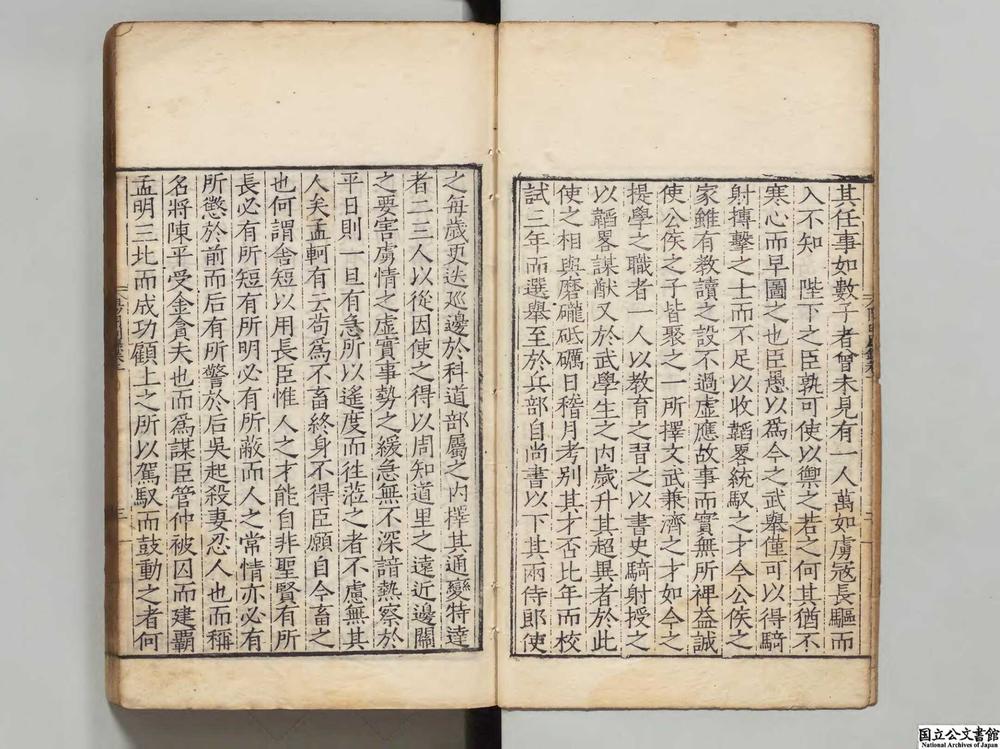 其任事如數子者曾未見有一人萬如虜宼長驅而
入不知　陛下之臣孰可使以禦之若之何其猶不
寒心而早圖之也臣愚以爲今之武舉僅可以得騎
射搏擊之士而不足以收韜畧統馭之才今公侯之
家雖有教讀之設不過虛應故事而實無所裨益誠
使公侯之子皆聚之一所擇文武兼濟之才如今之
提學之職者一人以教育之習之以書史騎射授之
以韜畧謀猷又於武學生之内歲升其超異者於此
使之相與磨礲砥礪日稽月考別其才否比年而校
試三年而選舉至於兵部自尚書以下其兩侍郎使
之每歲更迭廵邊於科道部屬之内擇其通變特達
者二三人以從因使之得以周知道里之遠近邊關
之要害虜情之虛實事勢之緩急無不深諳熟察於
平日則一旦有急所以遙度而徃蒞之者不慮無其
人矣孟軻有云苟爲不畜終身不得臣願自今畜之
也何謂舍短以用長臣惟人之才能自非聖賢有所
長必有所短有所明必有所蔽而人之常情亦必有
所懲於前而后有所警於后吳起殺妻忍人也而稱
名將陳平受金貪夫也而爲謀臣管仲被囚而建霸
孟明三北而成功顧上之所以駕馭而鼓動之者何
国立公文書館
National Archives of Japan